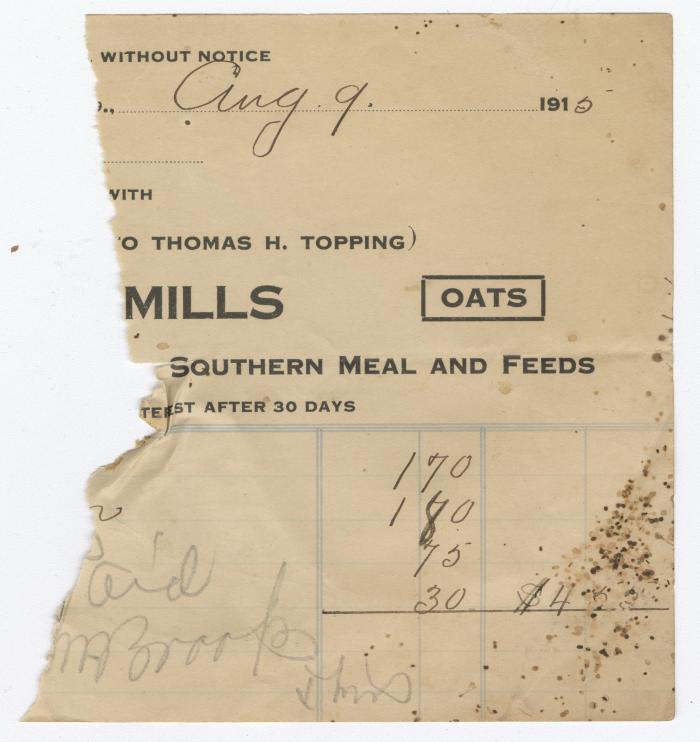 WITHOUT NOTICE
Aug. 9. 1915
WITH
TO THOMAS H. TOPPING)
MILLS
OATS
SOUTHERN MEAL AND FEEDS
TEREST AFTER 30 DAYS
170
180
75
30 $4 55